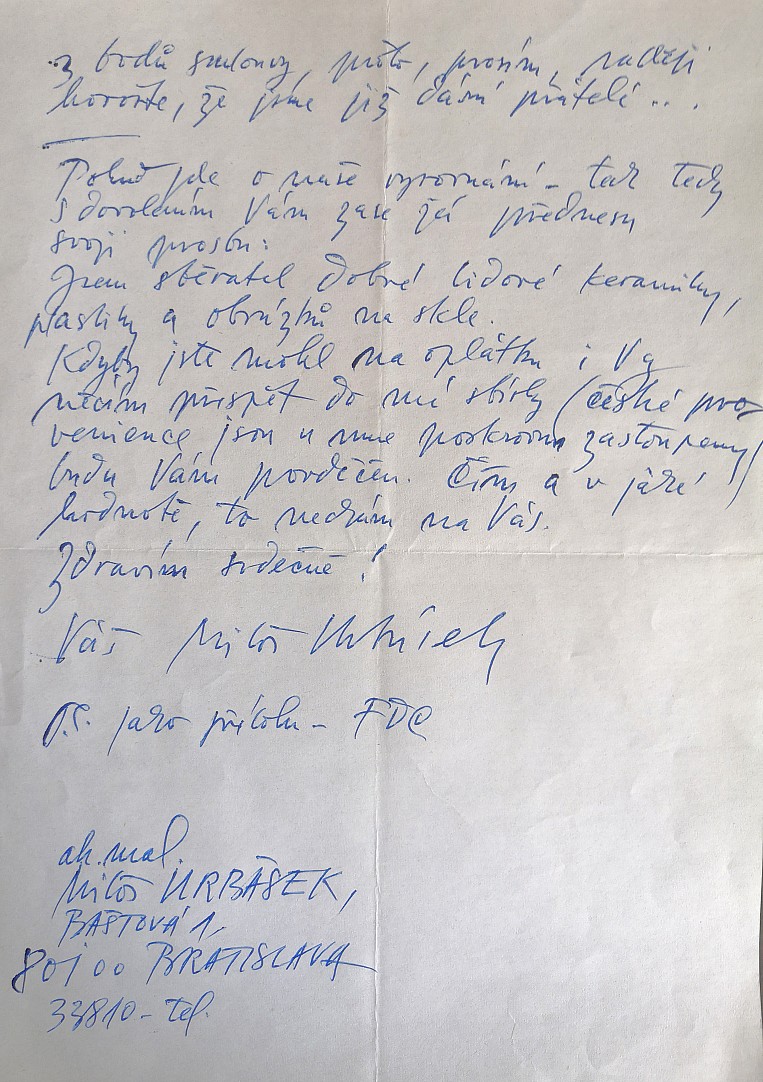 z bodů smlouvy, proto, prosím, raději
hovořte, že jsme již dávní přátelé...
Pokud jde o naše vyrovnání - tak tedy
s dovolením Vám zase já přednesu
svoji prosbu:
Jsem sběratel dobré lidové keramiky,
plastiky a obrázků na skle.
Kdyby jste mohl na oplátku i Vy
něčím přispět do mé sbírky (české pro-
venience jsou u mne poskrovnu zastoupeny)
budu Vám povděčen. Čím a v jaké
hodnotě, to nechám na Vás.
Zdravím srdečně!
Váš Miloš Urbásek
P.S. jako přílohu - FDC
ak. mal.
Miloš URBÁSEK,
BAŠTOVÁ 1.
801 00 BRATISLAVA
33810 - tel.